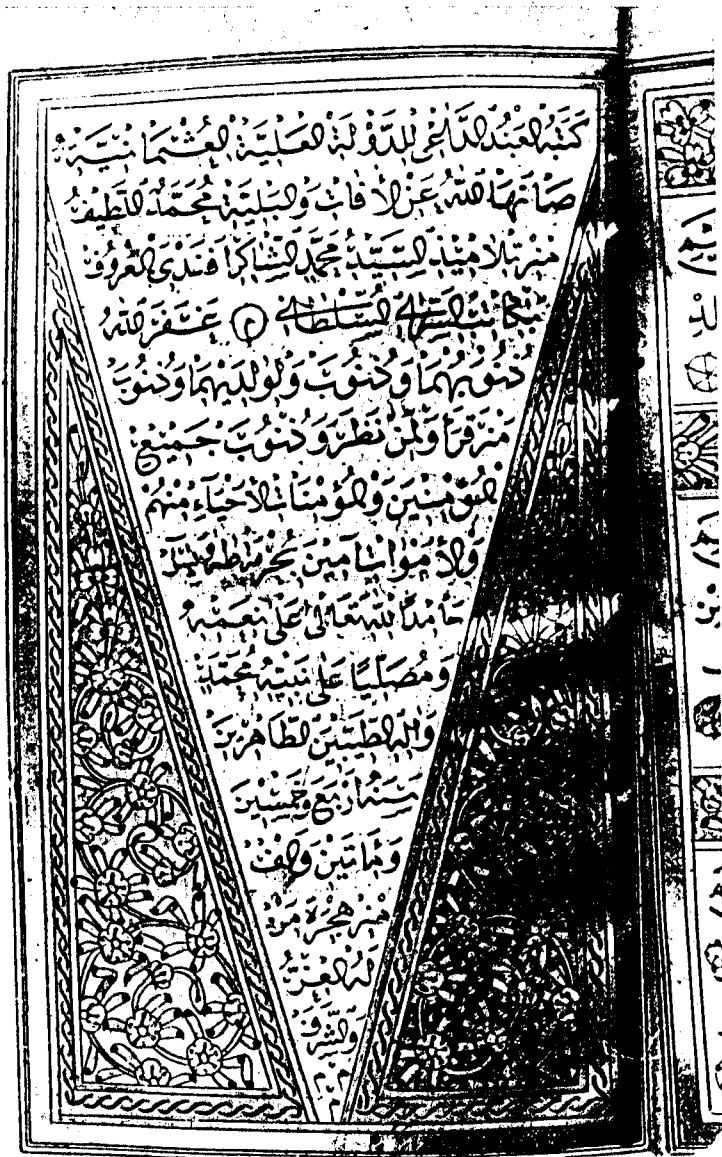 كَتَبَهُ الْعَبْدُ الدَّاعِى لِلدَّوْلَةِ الْعَلِيَّةِ الْعُثْمَانِيَّةِ
صَانَهَا اللّٰهُ عَنِ الْاٰفَاتِ وَالْبَلِيَّةِ مُحَمَّدُ اللَّطِيفُ
مِنْ تَلَامِيذِ السَّيِّدُ مُحَمَّدِ الشَّاكِرْ اَفَنْدِى الْمَعْرُوفُ
السُّلْطَانِى غَفَرَ اللّٰهُ
ذُنُوبَهُمَا وَذُنُوبَ وَلِوَالِدَيْهِمَا وَذُنُوبَ
مَنْ قَرَاَ وَلِمَنْ نَظَرَ وَذُنُوبَ جَمِيعِ
الْمُؤْمِنِينَ وَالْمُؤْمِنَاتِ الْاَحْيَاءِ مِنْهُمْ
وَالْاَمْوَاتِ اٰمِينَ بِحُرْمَةِ طٰهٰ وَيٰسٓ
حَامِدًا لِلّٰهِ تَعَالٰى عَلٰى نِعَمِهِ
وَمُصَلِّيًا عَلٰى نَبِيِّهِ مُحَمَّدٍ
وَاٰلِهِ الطَّيِّبِينَ الطَّاهِرِينَ
سَنَةَ اَرْبَعَ وَخَمْسِينَ
وَمِاَتَيْنِ وَاَلْفٍ
مِنْ هِجْرَةِ مَنْ
لَهُ الْعِزُّ
وَالشَّرَفُ